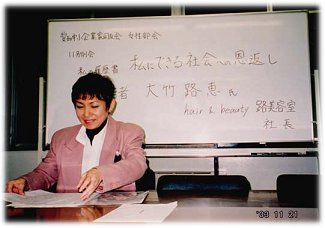 愛知中小企業家同友会 女性部会
11月例会
私の履歴書 私にできる社会への恩返し
者 大竹 路恵 氏
hair & beauty 路美容室
社長
11 21